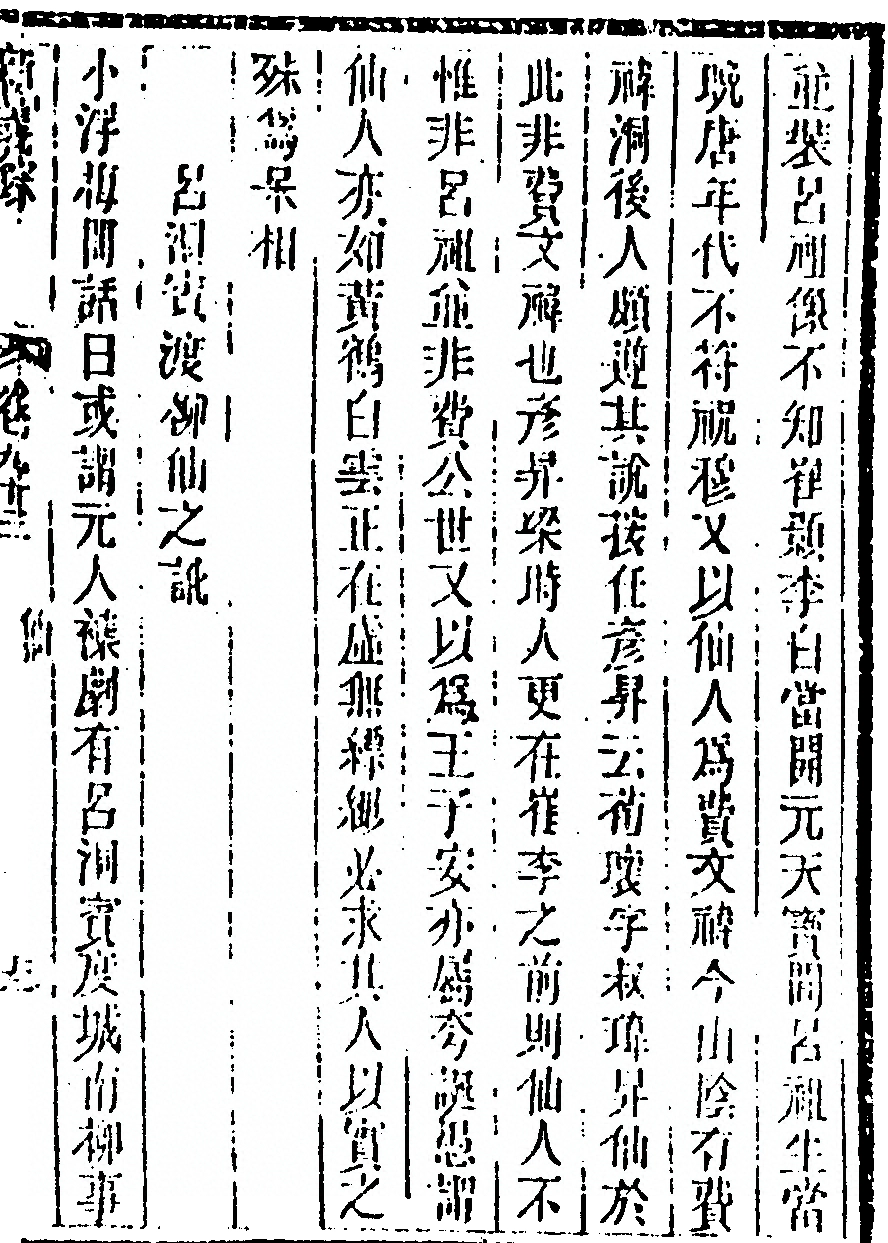 並裝呂祖像不知崔顥李白當開元天寶間呂祖生當
晚唐年代不符祝穆又以仙人為費文禕今山陰有費
禕洞後人頗遵其說按任彥昇云荀瓌字叔瑋昇仙於
此非費文禕也彥昇梁時人更在崔李之前則仙人不
惟非呂祖並非費公世又以為王子安亦屬夸誕愚謂
仙人亦如黃鶴白雲正在虛無縹緲必求其人以實之
殊為呆相
呂洞賓渡柳仙之訛
小浮梅閒話曰或謂元人襍劇有呂洞賓度城南柳事
卷九十三
仙